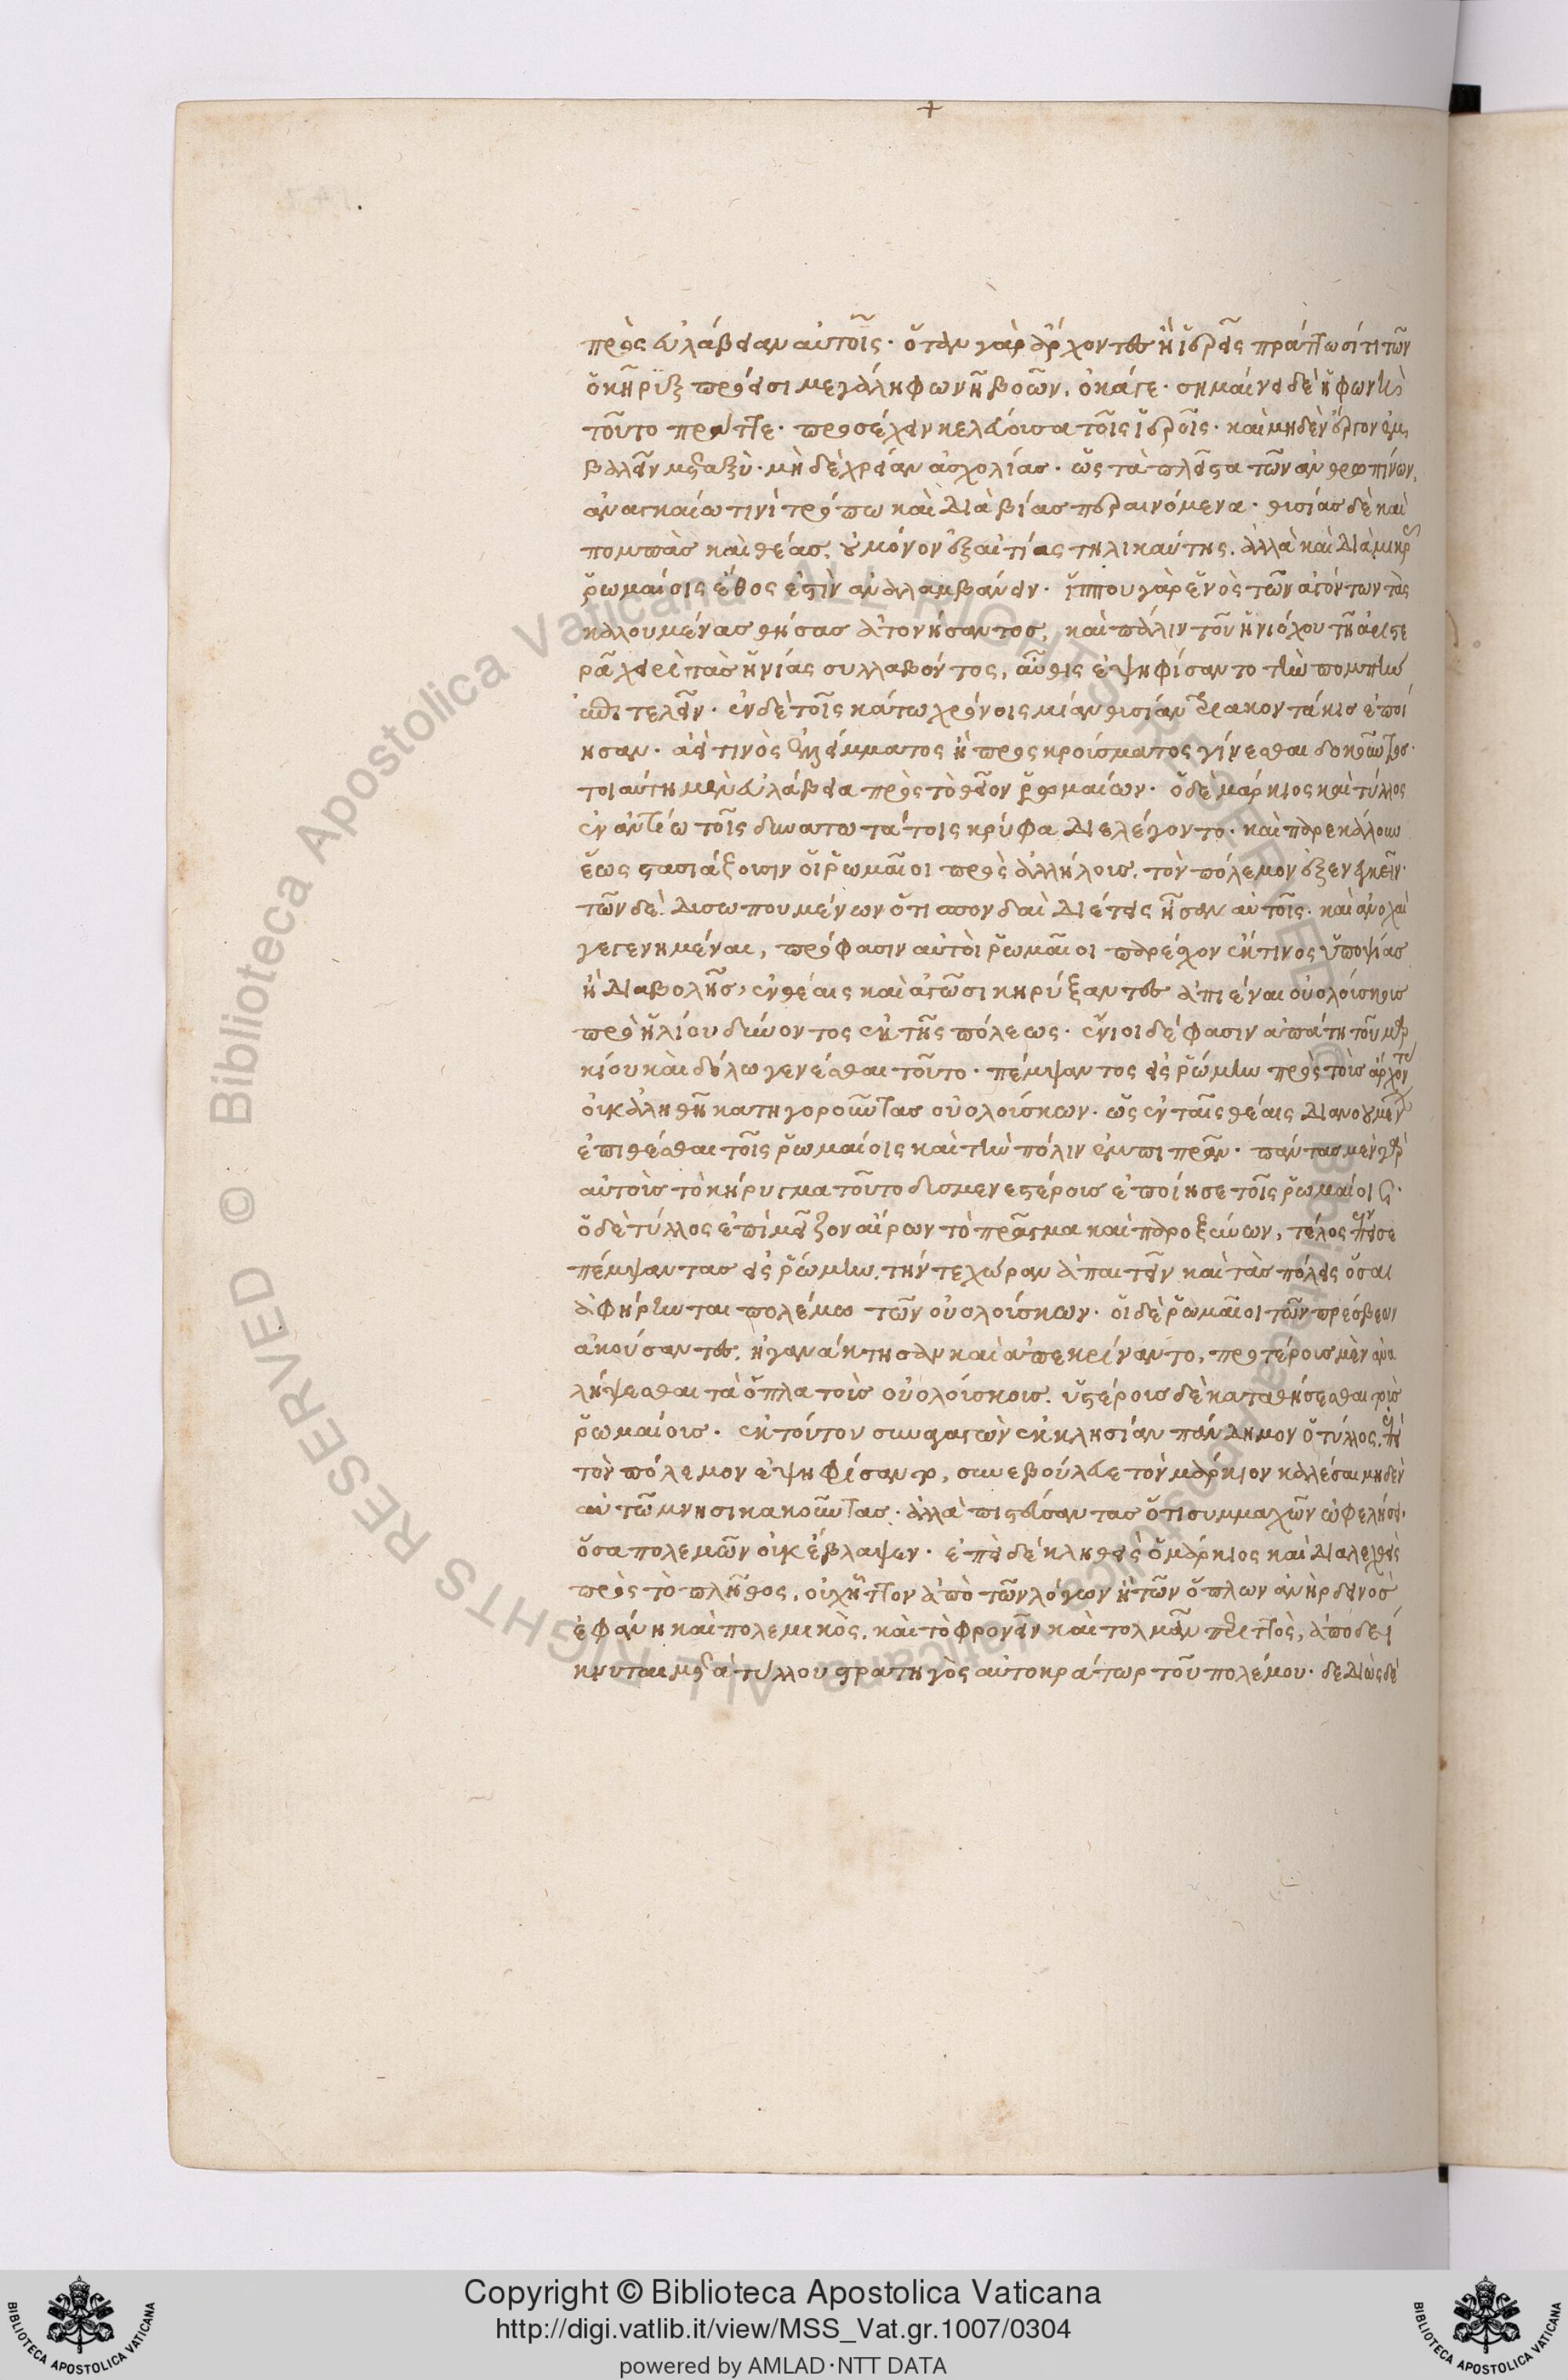 πρὸς εὐλάβειαν αὐτοῖς· ὅταν γὰρ ἄρχοντες ἢ ἱερεῖς πράττωσί τι τῶν
ὁ κῆρυξ πρόεισι μεγάλῃ φωνῇ βοῶν, ὁκάγε· σημαίνει δὲ ἡ φωνὴ
τοῦτο πρᾶττε· προσέχειν κελεύουσα τοῖς ἱεροῖς· καὶ μηδὲν ἔργον ἐμ
βαλεῖν μεταξὺ· μὴ δὲ χρείαν ἀσχολίας· ὡς τὰ πλεῖστα τῶν ἀνθρωπίνων,
ἀναγκαίω τινὶ τρόπω καὶ διὰ βίας περαινόμενα· θυσίας δὲ καὶ
πομπὰς καὶ θέας, οὐ μόνον ἐξ αἰτίας τηλικαύτης, ἀλλὰ καὶ διὰ μικρὰς
ῥωμαίοις ἔθος ἐστὶν ἀναλαμβάνειν· ἵππου γὰρ ἑνὸς τῶν ἀγόντων τὰς
καλουμένας θήσας ἀτονήσαντος, καὶ πάλιν τοῦ ἡνιόχου τῆ ἀριστε
ρᾶ χειρὶ τὰς ἡνίας συλλαβόντος, αὖθις ἐψηφίσαντο τὴν πομπὴν
ἐπιτελεῖν· ἐν δὲ τοῖς κάτω χρόνοις μίαν θυσίαν τριακοντάκις ἐποί
ησαν· ἀεί τινος ἐλλείμματος ἢ προσκρούσματος γίνεσθαι δοκοῦντος·
τοιαύτη μὲν εὐλάβεια πρὸς τὸ θεῖον ῥωμαίων· ὁ δὲ μάρκιος καὶ τύλλος
ἐν ἀντίω τοῖς δυνατωτάτοις κρύφα διελέγοντο· καὶ παρεκάλουν
ἕως στασιάζουσιν οἱ ῥωμαῖοι πρὸς ἀλλήλους, τὸν πόλεμον ἐξενεγκεῖν·
τῶν δὲ δυσωπουμένων ὅτι σπονδαὶ διετεῖς ἦσαν αὐτοῖς· καὶ ἀνοχαὶ
γεγενημέναι, πρόφασιν αὐτοὶ ῥωμαῖοι παρέσχον ἔκ τινος ὑποψίας
ἢ διαβολῆς, ἐν θέαις καὶ ἀγῶσι κηρύξαντες ἀπιέναι οὐολούσκους
πρὸ ἡλίου δύνοντος ἐκ τῆς πόλεως· ἔνιοι δέ φασιν ἀπάτη τοῦ μαρ
κίου καὶ δόλω γενέσθαι τοῦτο· πέμψαντος εἰς ῥώμην πρὸς τοὺς ἄρχοντας
οὐκ ἀληθῆ κατηγοροῦντας οὐολούσκων· ὡς ἐν ταῖς θέαις διανοουμένων
ἐπιθέσθαι τοῖς ῥωμαίοις καὶ τὴν πόλιν ἐμπιπρᾶν· πάντας μὲν γὰρ
αὐτοὺς τὸ κήρυγμα τοῦτο δυσμενεστέρους ἐποίησε τοῖς ῥωμαίοις·
ὁ δὲ τύλλος ἐπὶ μεῖζον αἴρων τὸ πρᾶγμα καὶ παροξύνων, τέλος ἔπεισε
πέμψαντας εἰς ῥώμην, τήν τε χώραν ἀπαιτεῖν καὶ τὰς πόλεις ὅσαι
ἀφήρηνται πολέμω τῶν οὐολούσκων· οἱ δὲ ῥωμαῖοι τῶν πρέσβεων
ἀκούσαντες, ἠγανάκτησαν καὶ ἀπεκρίναντο, προτέρους μὲν ἀνα
λήψεσθαι τὰ ὅπλα τοὺς οὐολούσκους, ὑστέρους δὲ καταθήσεσθαι τοὺς
ῥωμαίους· ἐκ τούτου συναγαγὼν ἐκκλησίαν πάνδημον ὁ τύλλος, ἐπεὶ
τὸν πόλεμον ἐψηφίσαντο, συνεβούλευε τὸν μάρκιον καλέσαι μηδὲν
αὐτῶ μνησικακοῦντας· ἀλλὰ πιστεύσαντας ὅτι συμμαχῶν ὠφελήσει·
ὅσα πολεμῶν οὐκ ἔβλαψεν· ἐπεὶ δὲ κληθεὶς ὁ μάρκιος καὶ διαλεχθεὶς
πρὸς τὸ πλῆθος, οὐχ ἧττον ἀπὸ τῶν λόγων ἢ τῶν ὅπλων ἀνὴρ δεινὸς
ἐφάνη καὶ πολεμικὸς, καὶ τὸ φρονεῖν καὶ τολμᾶν περιττὸς, ἀποδεί
κνυται μετὰ τύλλου στρατηγὸς αὐτοκράτωρ τοῦ πολέμου· δεδιὼς δὲ
Copyright © Biblioteca Apostolica Vaticana
http://digi.vatlib.it/view/MSS_Vat.gr.1007/0304
powered by AMLAD·NTT DATA
BIBLIOTECA APOSTOLICA VATICANA
BIBLIOTECA APOSTOLICA VATICANA
© Biblioteca Apostolica Vaticana ALL RIGHTS RESERVED